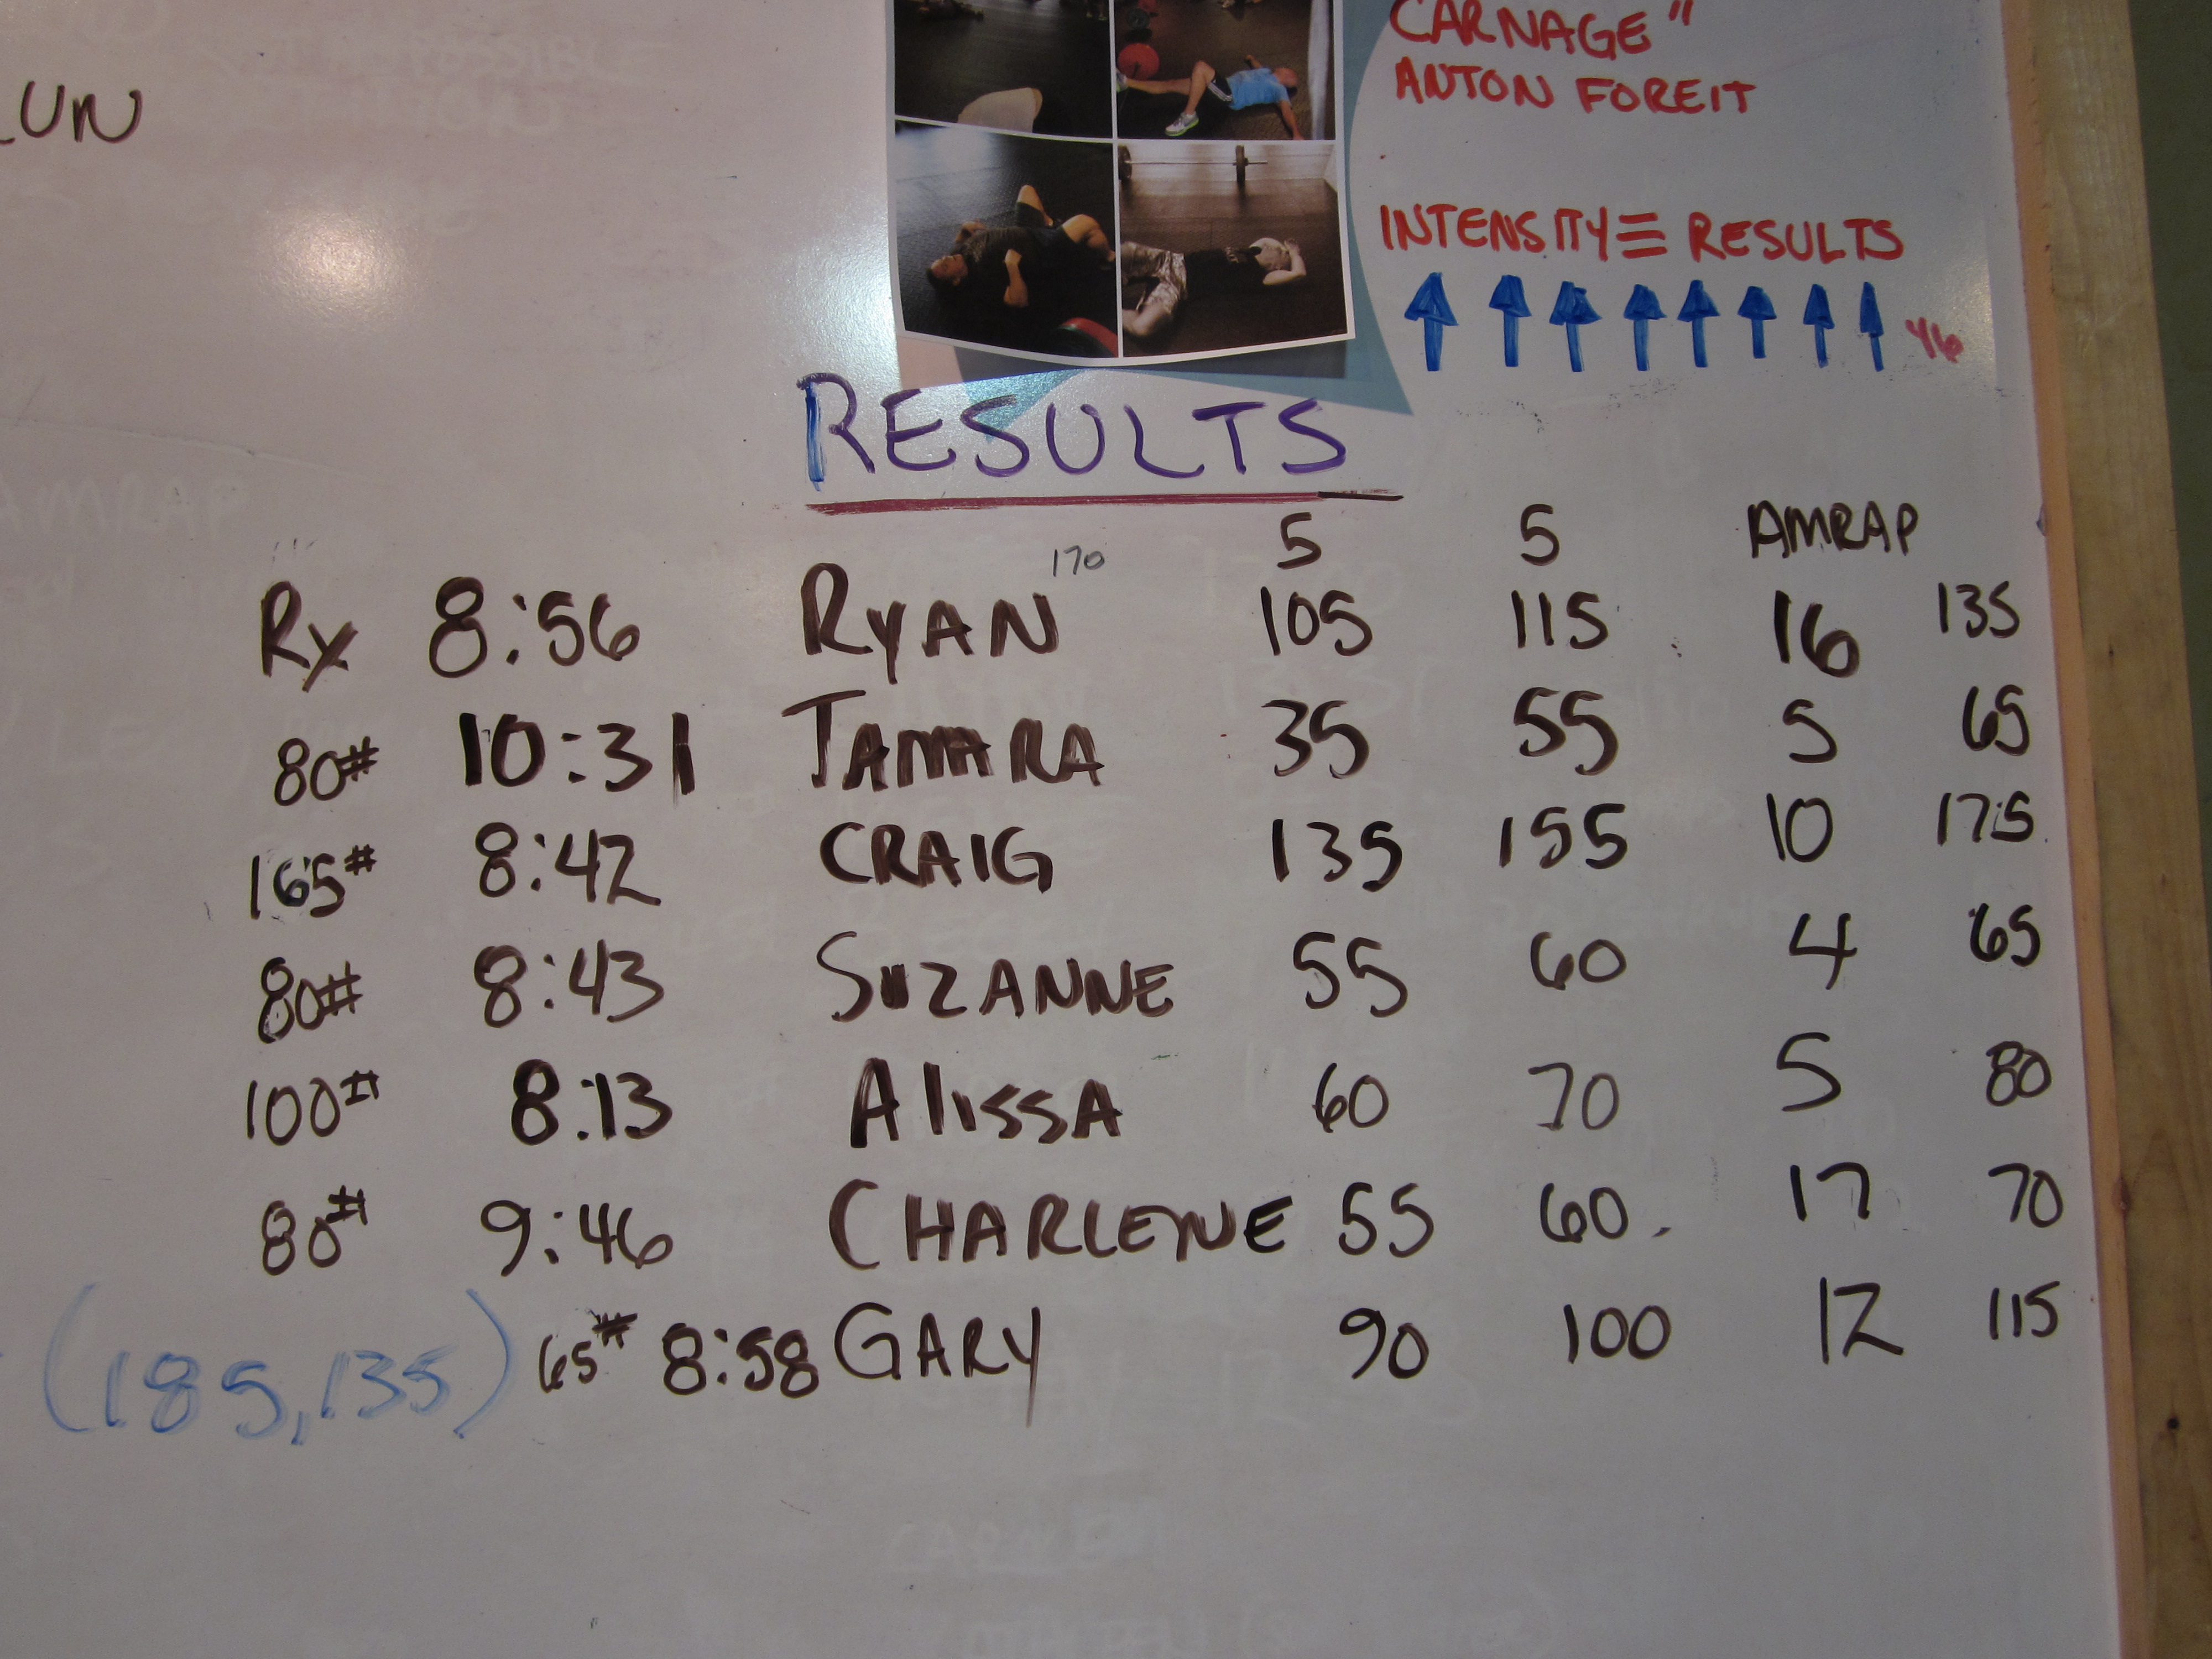 CARNAGE"
ANTON FOREIT
UN
INTENSITY ≡ RESULTS
RESULTS
5 5 AMRAP
170
Rx 8:56 RYAN 105 115 16 135
80# 10:31 TAMARA 35 55 5 65
165# 8:42 CRAIG 135 155 10 175
80# 8:43 SUZANNE 55 60 4 65
100# 8:13 AlissA 60 70 5 80
80# 9:46 CHARLENE 55 60 17 70
(185,135) 65# 8:58 GARY 90 100 12 115